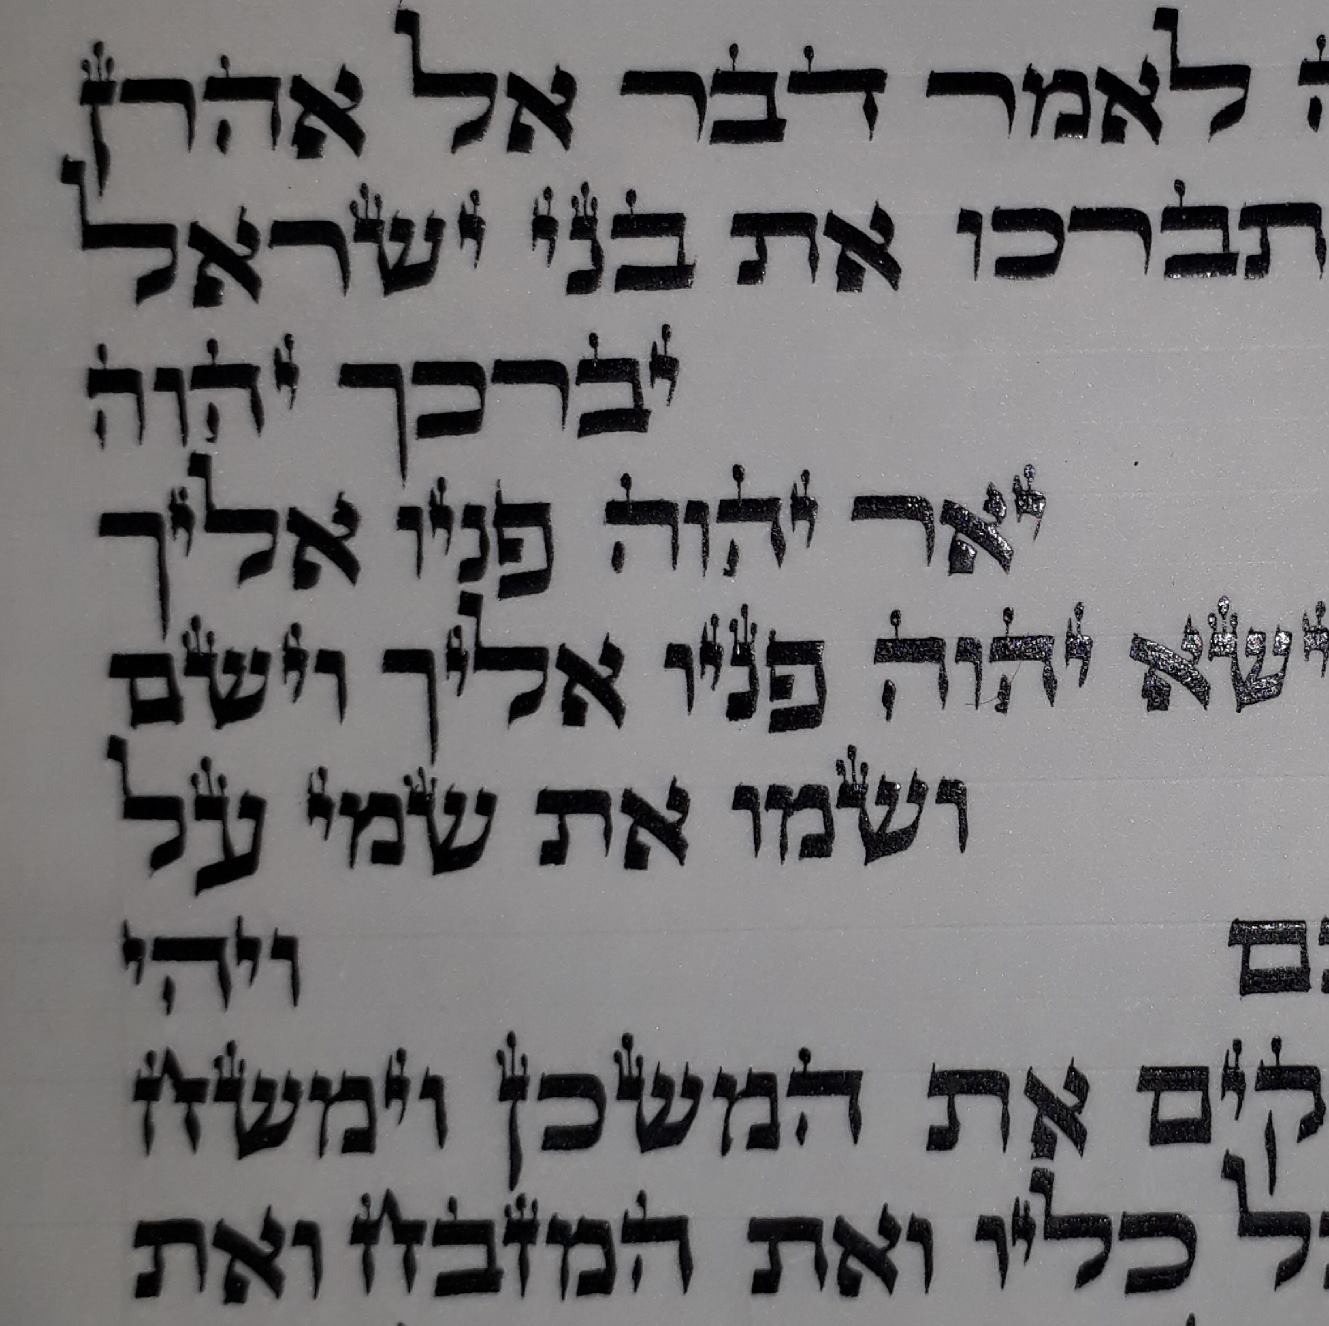 לאמר דבר אל אהרן
תברכו את בני ישראל
יברכך יהוה
יאר יהוה פניו אליך
ישא יהוה פניו אליך וישם
ושמו את שמי על
ויהי
קים את המשכן וימשח
כל כליו ואת המזבח ואת